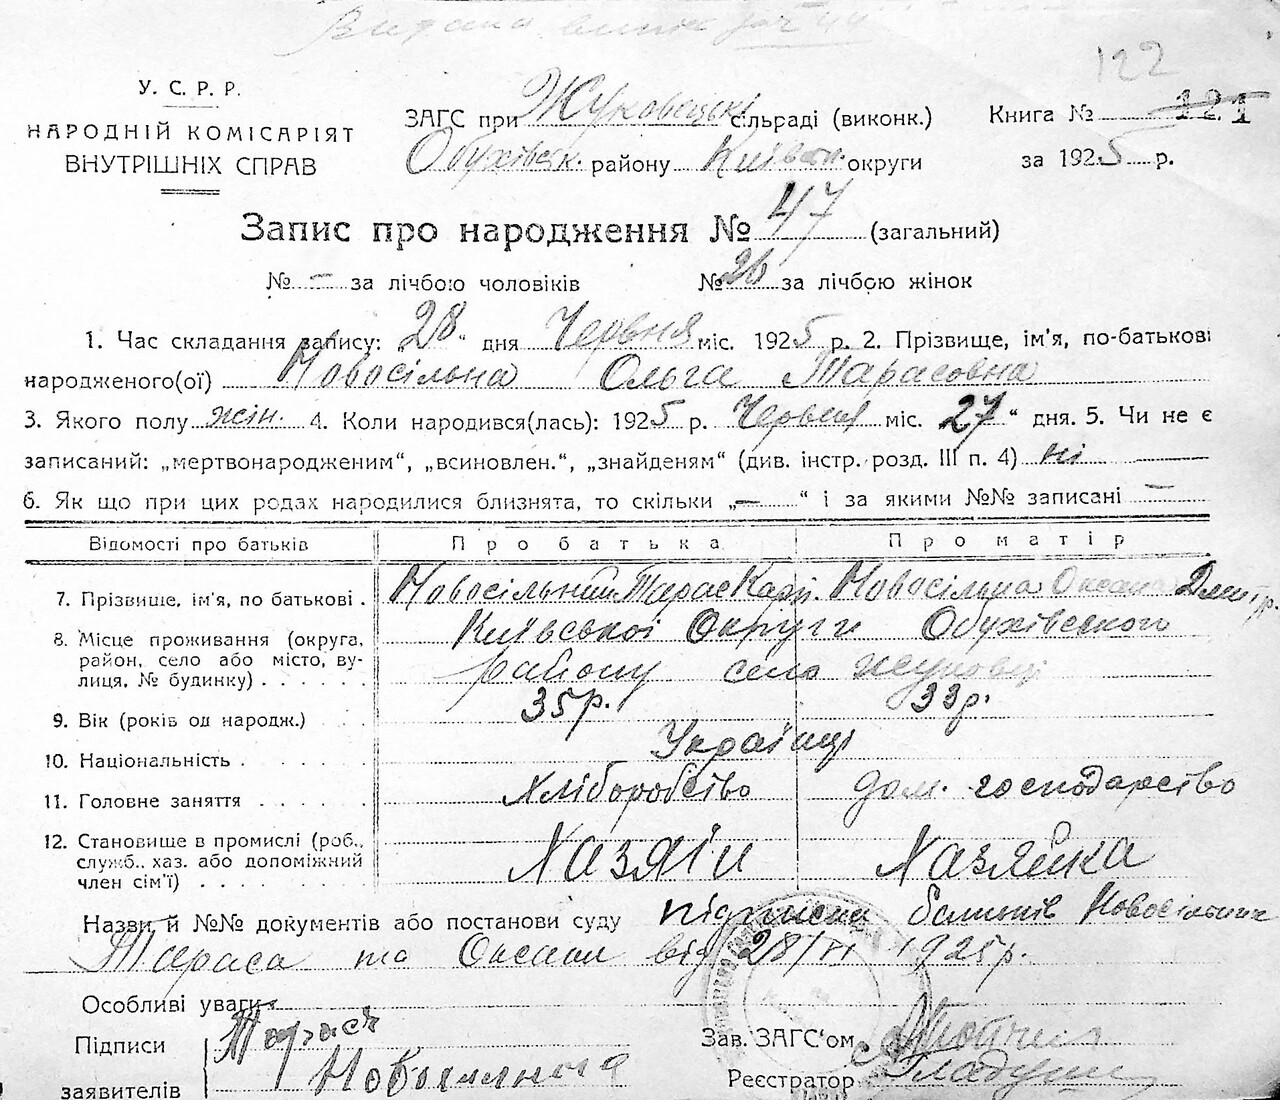 Видана
122
У. С. Р. Р.
НАРОДНІЙ КОМІСАРІЯТ
ВНУТРІШНІХ СПРАВ
ЗАГС при Жуковецькі сільраді (виконк.)
Обухівськ. району Київськ. округи
Книга № 121
за 1925 р.
Запис про народження № 47 (загальний)
№ – за лічбою чоловіків № 26 за лічбою жінок
1. Час складання запису: „28“ дня Червня міс. 1925 р. 2. Прізвище, ім'я, по-батькові
народженого(ої) Новосільна Ольга Тарасовна
3. Якого полу жін. 4. Коли народився(лась): 1925 р. Червня міс. 27“ дня. 5. Чи не є
записаний: „мертвонародженим“, „всиновлен.“, „знайденям“ (див. інстр. розд. III п. 4) ні
6. Як що при цих родах народилися близнята, то скільки „—“ і за якими №№ записані —
Відомості про батьків Про батька Про матір
7. Прізвише, ім'я, по батькові . Новосільний Тарас Карп. Новосільна Оксана Дмитр.
8. Місце проживання (округа, Київської Округи Обухівського
район, село або місто, ву- району село Жуковці
лиця, № будинку) . . . . . .
9. Вік (років од народж.) . . . 35р. 33р.
10. Національність . . . . . . . Українці
11. Головне заняття . . . . . . Хліборобство дом. господарство
12. Становише в промислі (роб., Хазяїн Хазяйка
служб., хаз. або допоміжний
член сім'ї) . . . . . . . . . .
Назви й №№ документів або постанови суду підписка батьків Новосільних
Тараса та Оксани від 28/VI 1925р.
Особливі уваги
Підписи Тарас
заявителів Новосильна
Зав. ЗАГС'ом
Реєстратор